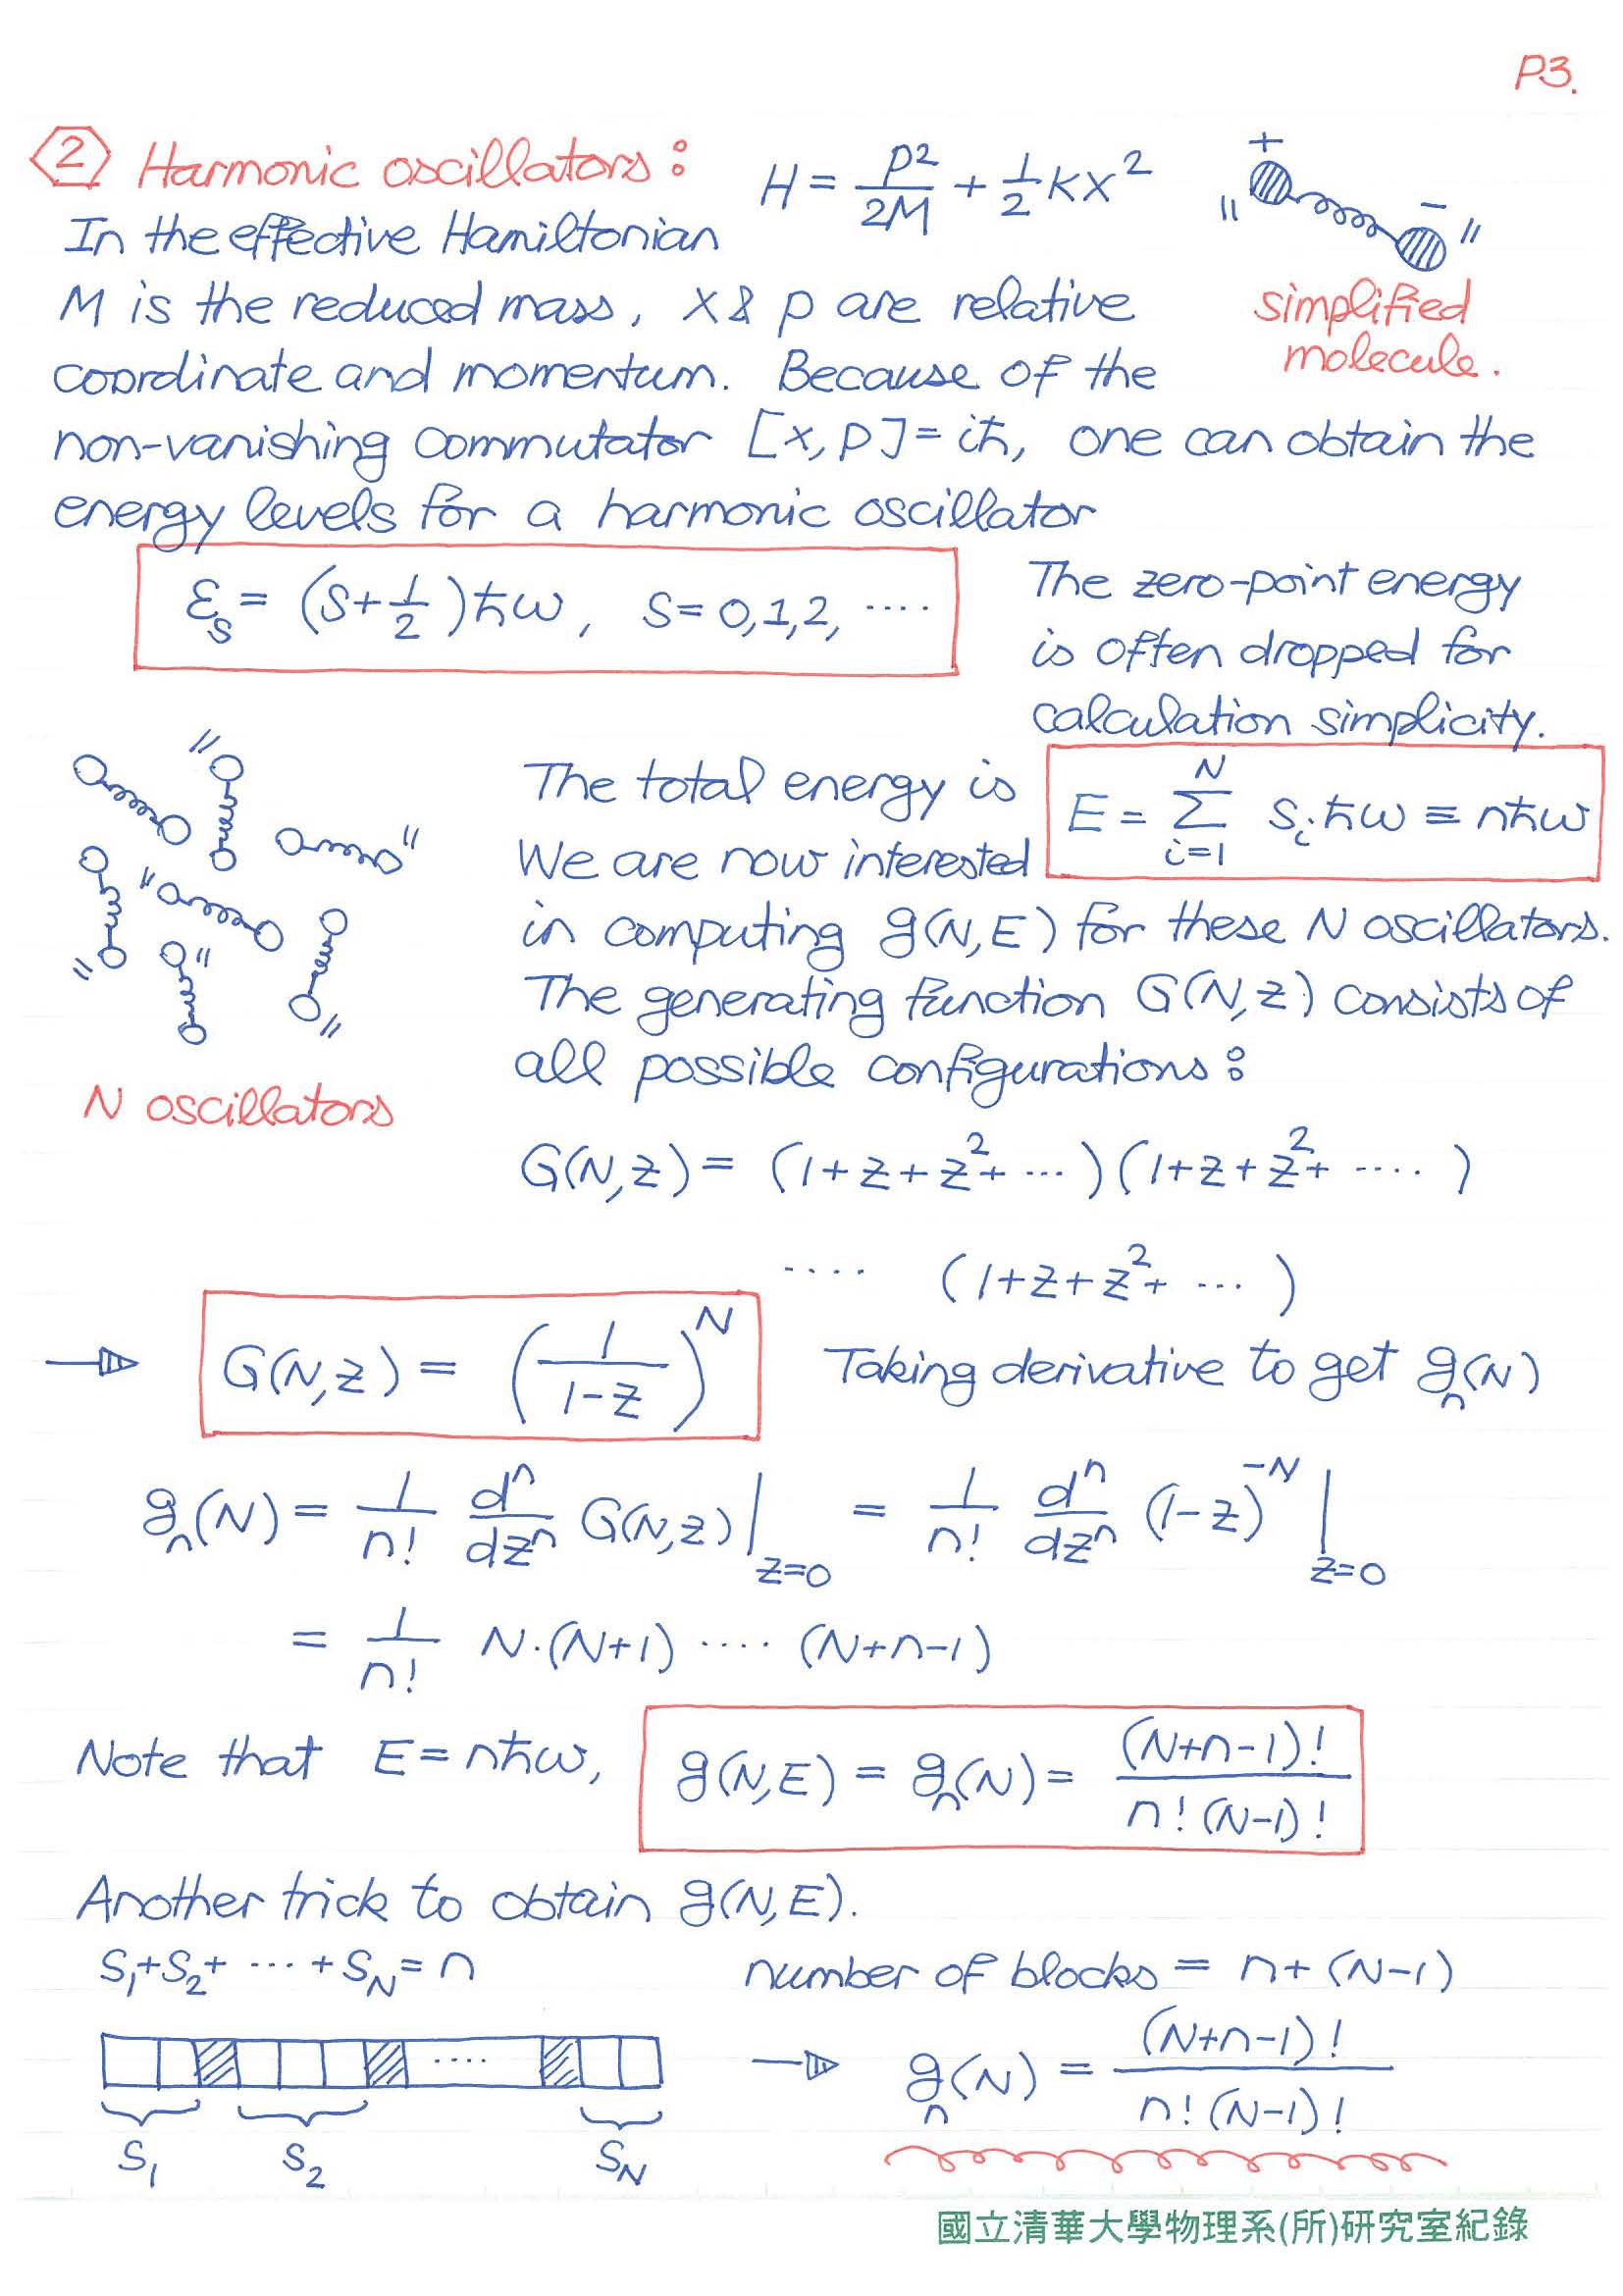 P3.
② Harmonic oscillators: H = p²/2M + ½kx²
+
−
In the effective Hamiltonian
M is the reduced mass, x & p are relative
simplified
molecule.
coordinate and momentum. Because of the
non-vanishing commutator [x, p] = iħ, one can obtain the
energy levels for a harmonic oscillator
εₛ = (s + ½)ħω, s = 0, 1, 2, ····
The zero-point energy
is often dropped for
calculation simplicity.
The total energy is E = Σ_{i=1}^{N} sᵢħω ≡ nħω
We are now interested
in computing g(N,E) for these N oscillators.
The generating function G(N,z) consists of
all possible configurations:
N oscillators
G(N,z) = (1+z+z²+ ···)(1+z+z²+ ····)
···· (1+z+z²+ ···)
→ G(N,z) = (1/(1−z))^N Taking derivative to get gₙ(N)
gₙ(N) = 1/n! dⁿ/dzⁿ G(N,z)|_{z=0} = 1/n! dⁿ/dzⁿ (1−z)^{−N}|_{z=0}
= 1/n! N·(N+1) ···· (N+n−1)
Note that E = nħω, g(N,E) = gₙ(N) = (N+n−1)! / n!(N−1)!
Another trick to obtain g(N,E).
s₁+s₂+ ··· +s_N = n number of blocks = n+(N−1)
····
→ gₙ(N) = (N+n−1)! / n!(N−1)!
s₁ s₂ s_N
國立清華大學物理系(所)研究室紀錄